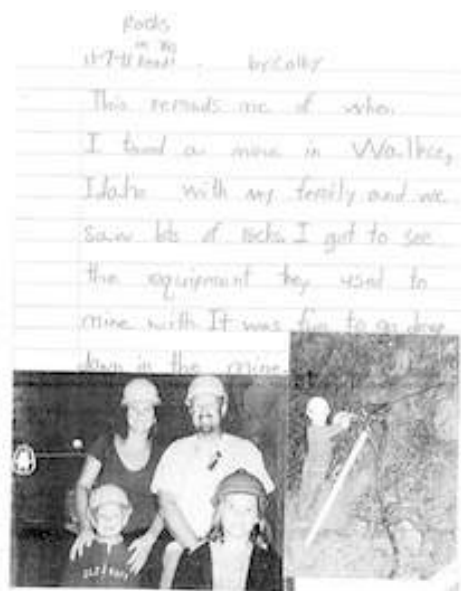 Rocks
in my
Head! by Colby
This reminds me of when
I toured a mine in Wallace,
Idaho with my family and we
saw lots of rocks. I got to see
the equipment they used to
mine with. It was fun to go deep
down in the mine
OLD NAVY